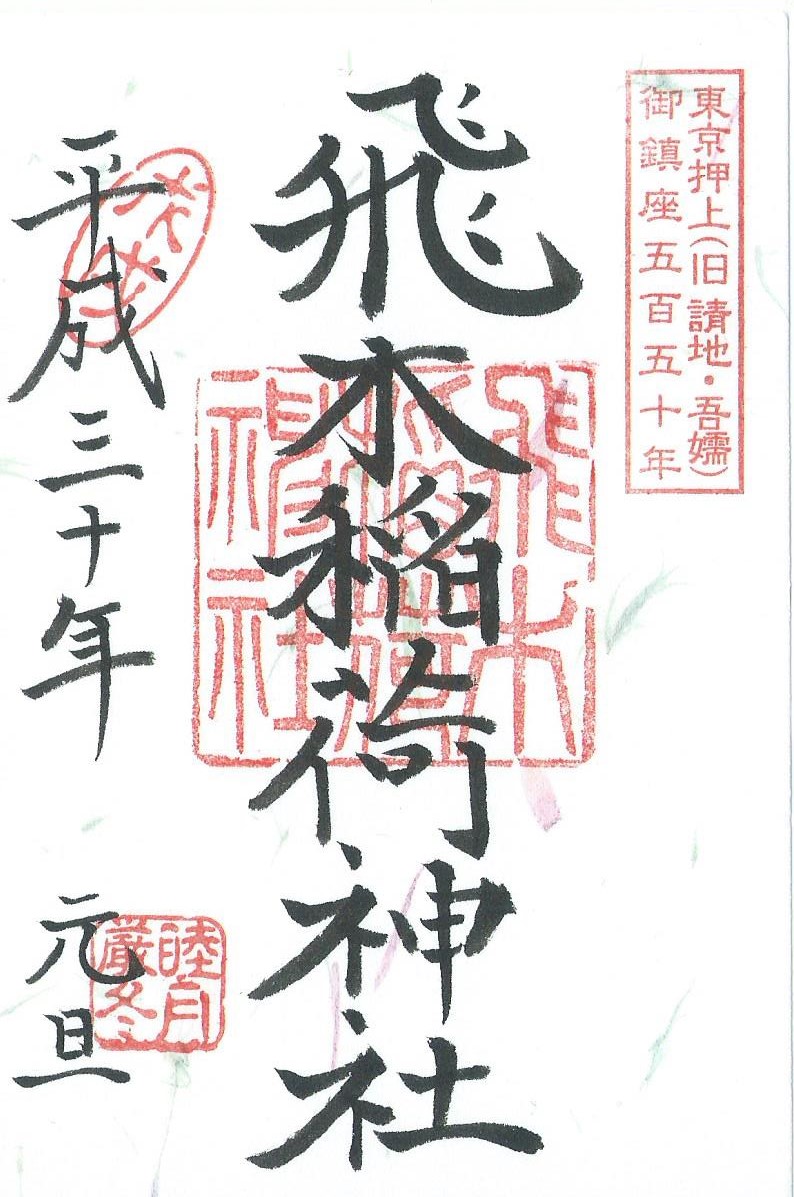 東京押上(旧請地・吾嬬)
御鎮座五百五十年
飛木稲荷神社
飛木
稲荷
神社
平成三十年 元旦
睦月
厳冬